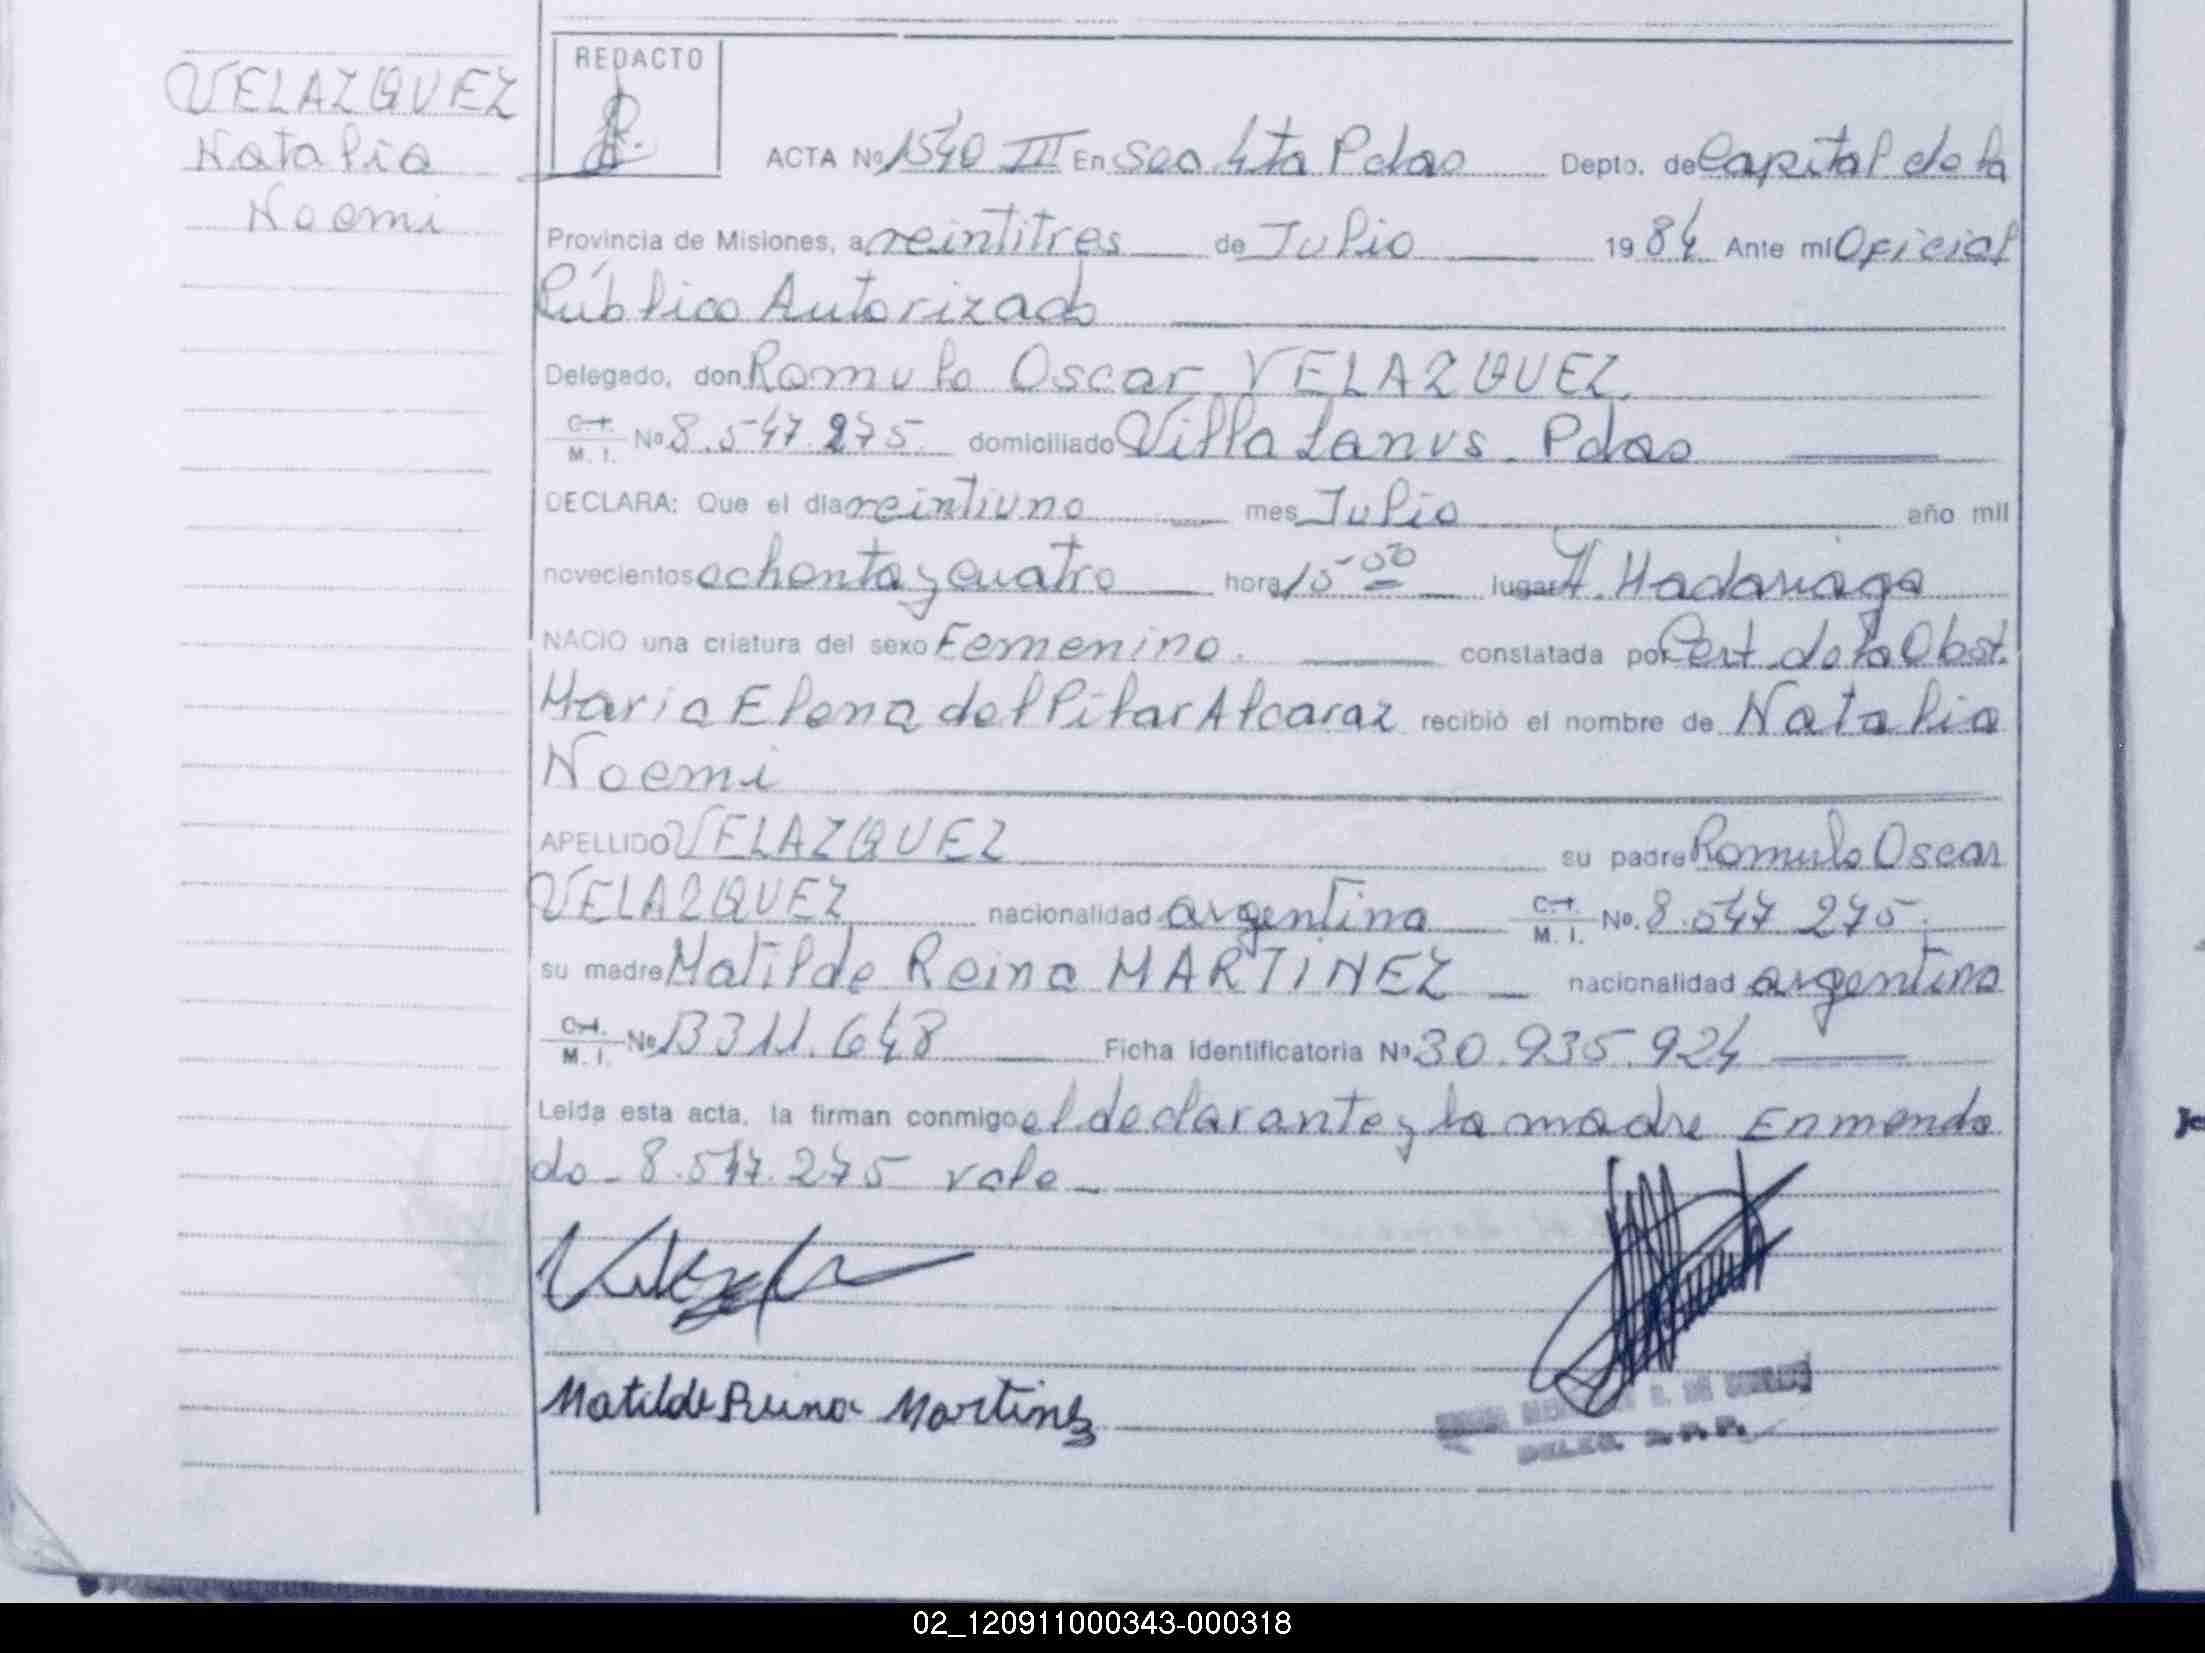 VELAZQUEZ
Natalia
Noemi
REDACTO
ACTA Nº 1540 III En Sec 4ta Pdas Depto. de Capital de la
Provincia de Misiones, a veintitres de Julio 1984 Ante mi Oficial
Público Autorizado
Delegado, don Romulo Oscar VELAZQUEZ
C.I. M. I. Nº 8.547.275 domiciliado Villa Lanus. Pdas
DECLARA: Que el dia veintiuno mes Julio año mil
novecientos ochenta y cuatro hora 15-00 lugar H. Madariaga
NACIO una criatura del sexo Femenino. constatada por Cert. de la Obst.
Maria Elena del Pilar Alcaraz recibió el nombre de Natalia
Noemi
APELLIDO VELAZQUEZ su padre Romulo Oscar
VELAZQUEZ nacionalidad argentina C.I. M. I. No. 8.547 275.
su madre Matilde Reina MARTINEZ nacionalidad argentina
C.I. M. I. Nº 13311.648 Ficha Identificatoria Nº 30.935.924
Leida esta acta, la firman conmigo el declarante y la madre Enmenda
do - 8.547.275 vale -
Matilde Reina Martinez
02_120911000343-000318